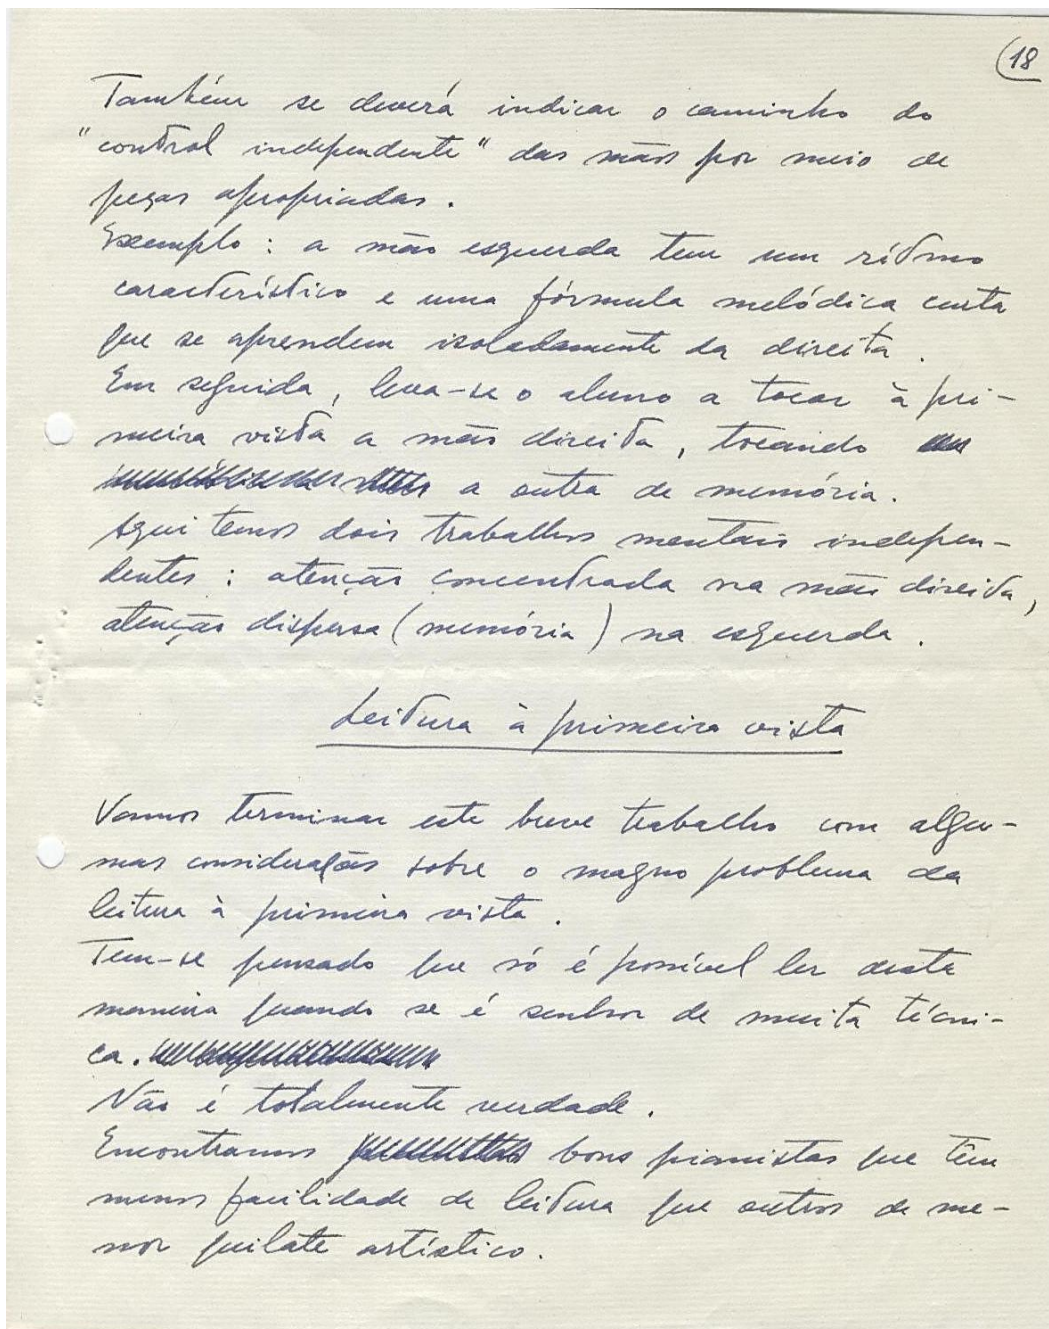 18
Também se deverá indicar o caminho do
"control independente" das mãos por meio de
peças apropriadas.
Exemplo: a mão esquerda tem um rítmo
característico e uma fórmula melódica curta
que se aprendem isoladamente da direita.
Em seguida, leva-se o aluno a tocar à pri-
meira vista a mão direita, tocando
a outra de memória.
Aqui temos dois trabalhos mentais indepen-
dentes: atenção concentrada na mão direita,
atenção dispersa (memória) na esquerda.
Leitura à primeira vista
Vamos terminar este breve trabalho com algu-
mas considerações sobre o magno problema da
leitura à primeira vista.
Tem-se pensado que só é possível ler desta
maneira quando se é senhor de muita técni-
ca.
Não é totalmente verdade.
Encontramos bons pianistas que têm
menos facilidade de leitura que outros de me-
nor quilate artístico.